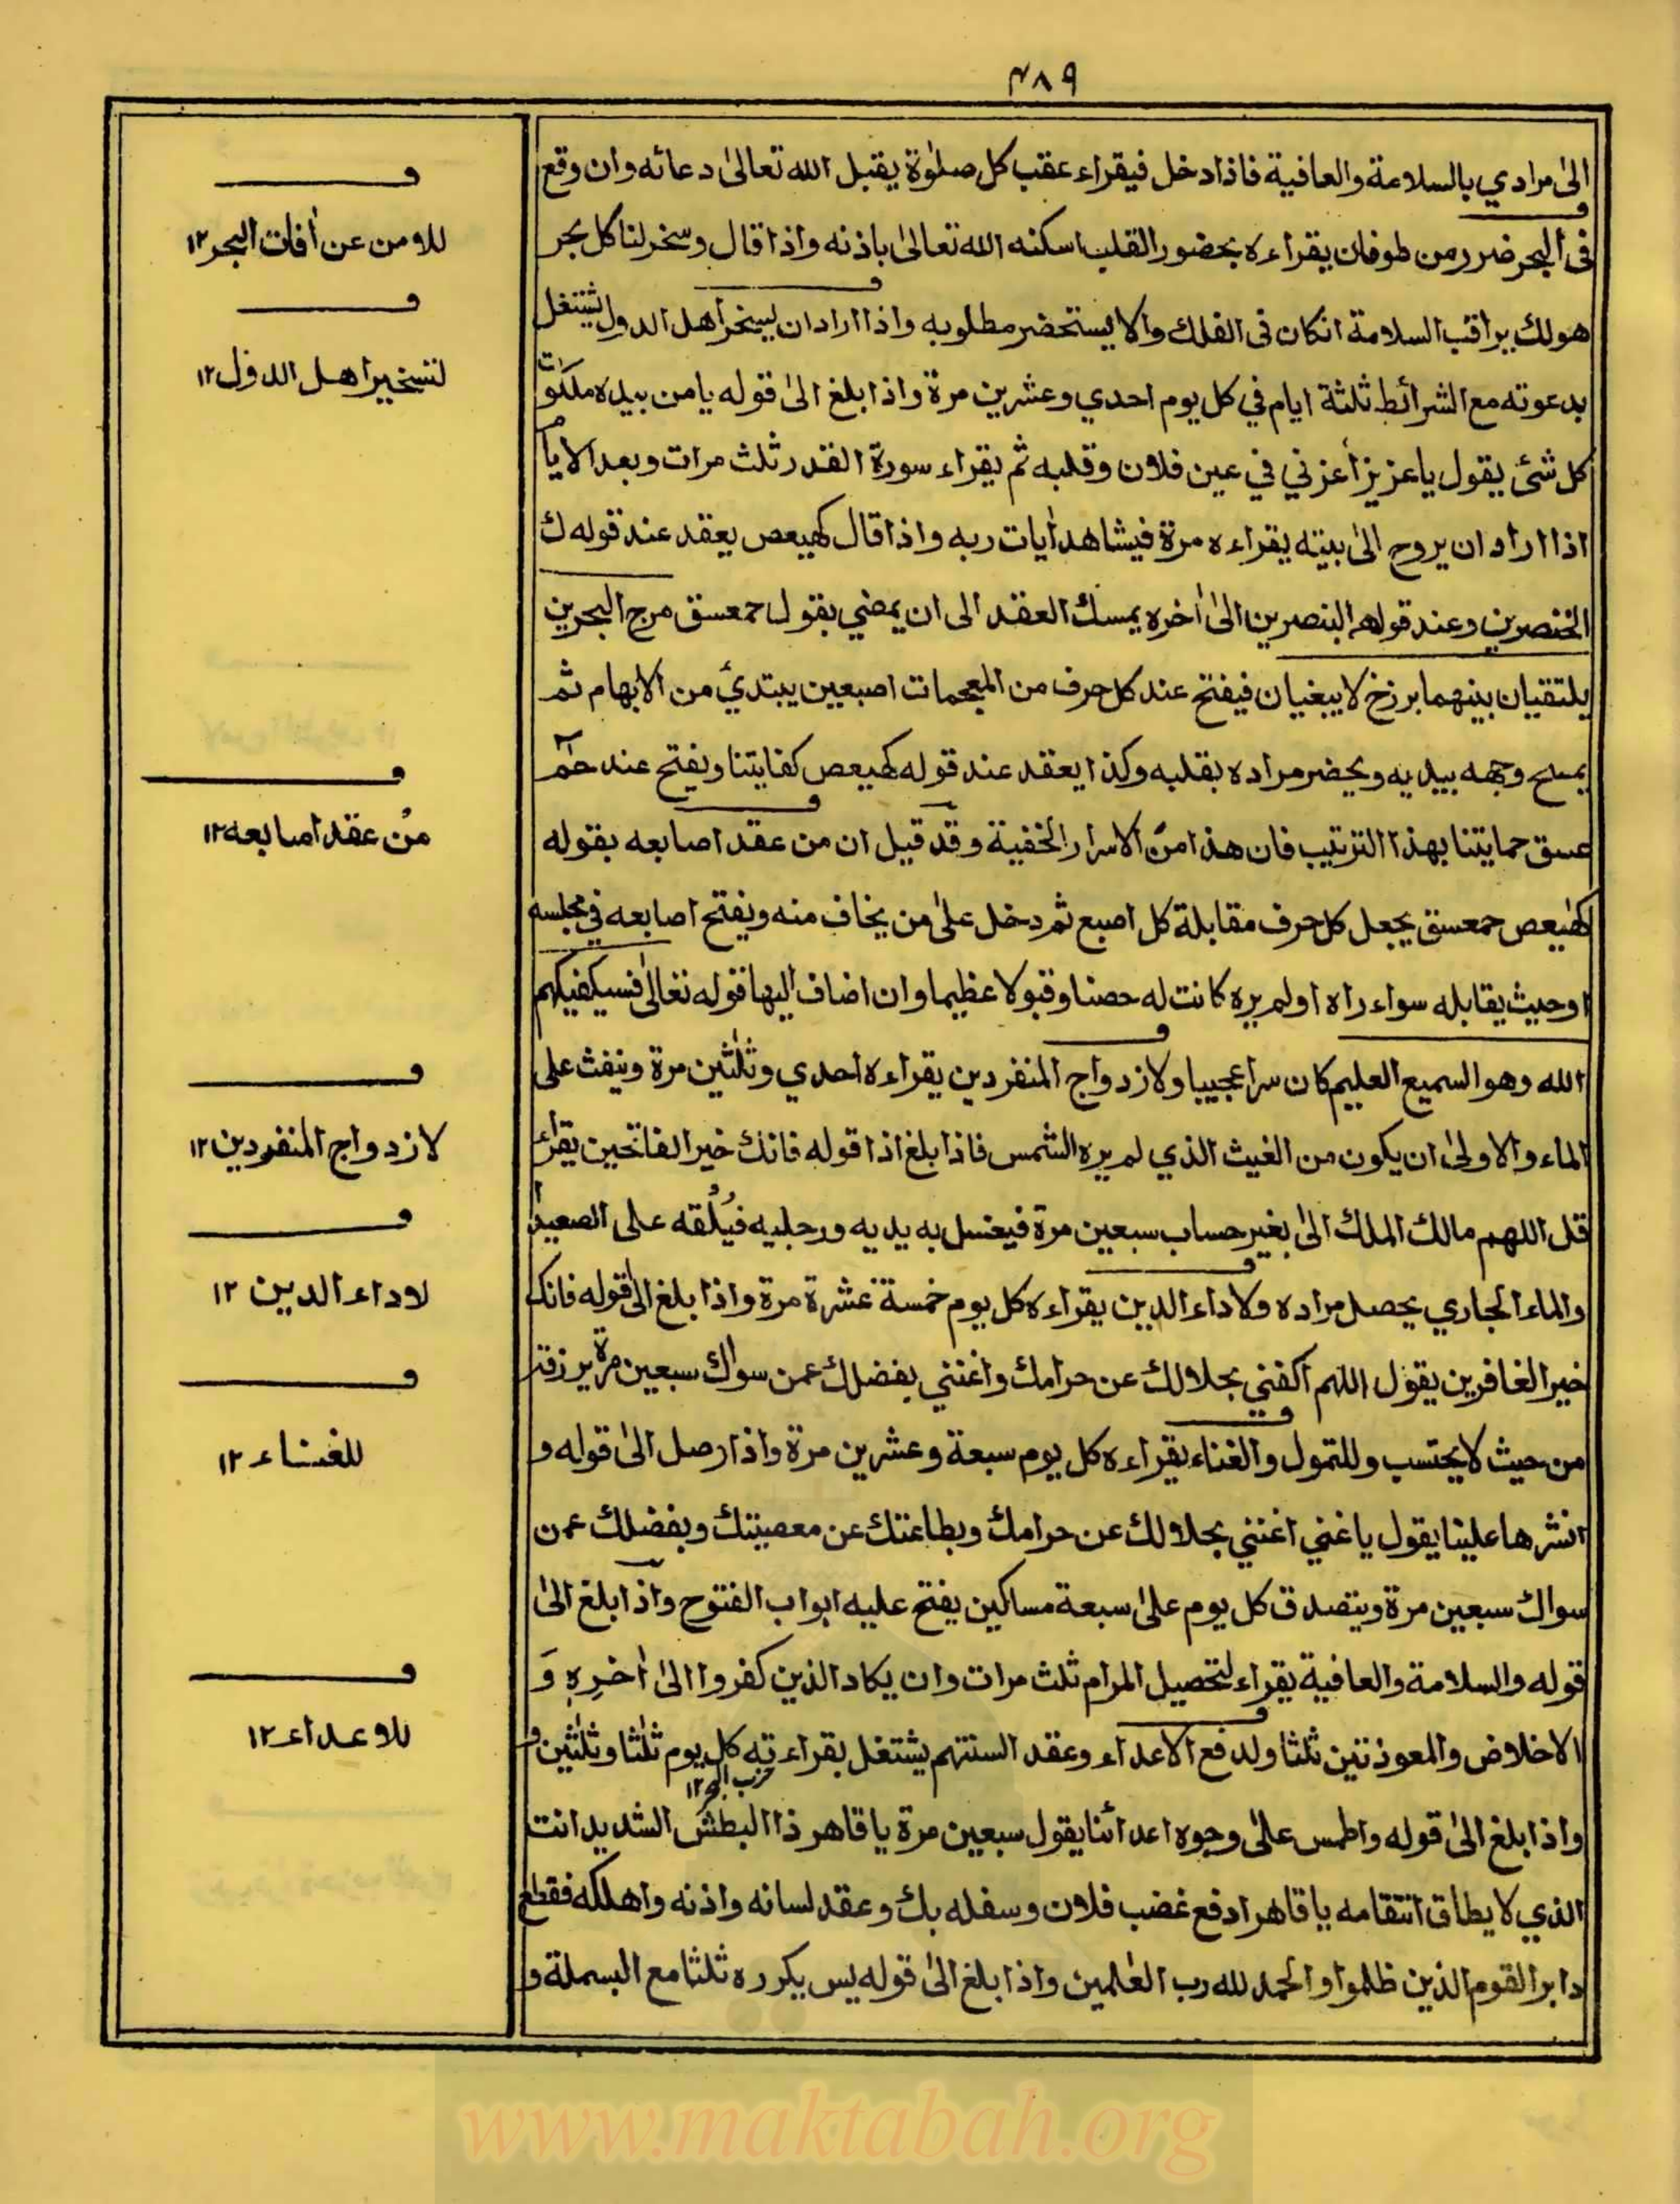 ٤٨٩
الىٰ مرادي بالسلامة والعافية فاذا دخل فيقراء عقب كل صلوٰة يقبل الله تعالىٰ دعائه وان وقع
فى البحر ضرر من طوفان يقراءه بحضور القلب اسكنه الله تعالىٰ باذنه واذا قال وسخر لنا كل بحر
هو لك يراقب السلامة انكان فى الفلك والا يستحضر مطلوبه واذا اراد ان يسخر اهل الدول يشتغل
بدعوته مع الشرائط ثلثة ايام في كل يوم احدي وعشرين مرة واذا بلغ الىٰ قوله يا من بيده ملكوت
كل شئ يقول يا عزيز أعزني في عين فلان وقلبه ثم يقراء سورة القدر ثلث مرات وبعد الايام
اذا اراد ان يروح الىٰ بيته يقراءه مرة فيشاهد اٰيات ربه واذا قال كهيعص يعقد عند قوله ك
الخنصرين وعند قوله ه البنصرين الىٰ اٰخره يمسك العقد الى ان يمضي بقول حمعسق مرج البحرين
يلتقيان بينهما برزخ لا يبغيان فيفتح عند كل حرف من المعجمات اصبعين يبتدئ من الابهام ثم
يمسح وجهه بيديه ويحضر مراده بقلبه وكذا يعقد عند قوله كهيعص كفايتنا ويفتح عند حٰمٓ
عسق حمايتنا بهذا الترتيب فان هذا من الاسرار الخفية وقد قيل ان من عقد اصابعه بقوله
كهيعص حمعسق يجعل كل حرف مقابلة كل اصبع ثم دخل علىٰ من يخاف منه ويفتح اصابعه في مجلسه
او حيث يقابله سواء راه او لم يره كانت له حصنا وقبولا عظيما وان اضاف اليها قوله تعالىٰ فسيكفيكهم
الله وهو السميع العليم كان سرا عجيبا ولازدواج المنفردين يقراءه احدي وثلٰثين مرة وينفث على
الماء والاولىٰ ان يكون من الغيث الذي لم يره الشمس فاذا بلغ اذا قوله فانك خير الفاتحين يقراء
قل اللهم مالك الملك الىٰ بغير حساب سبعين مرة فيغسل به يديه ورجليه فيُلْقه على الصعيد
والماء الجاري يحصل مراده ولاداء الدين يقراءه كل يوم خمسة عشرة مرة واذا بلغ الىٰ قوله فانك
خير الغافرين يقول اللهم اكفني بحلالك عن حرامك واغنني بفضلك عمن سواك سبعين مرة يرزقه
من حيث لا يحتسب وللتمول والغناء يقراءه كل يوم سبعة وعشرين مرة واذا رصل الىٰ قوله و
انشرها علينا يقول يا غني اغنني بحلالك عن حرامك وبطاعتك عن معصيتك وبفضلك عمن
سواك سبعين مرة ويتصدق كل يوم علىٰ سبعة مساكين يفتح عليه ابواب الفتوح واذا بلغ الىٰ
قوله والسلامة والعافية يقراء لتحصيل المرام ثلث مرات وان يكاد الذين كفروا الىٰ اٰخرِهٖ وَ
الاخلاص والمعوذتين ثلثا ولدفع الاعداء وعقد السنتهم يشتغل بقراءته كل يوم ثلٰثا وثلٰثين و
حزب البحر ١٢
واذا بلغ الىٰ قوله واطمس علىٰ وجوه اعدائنا يقول سبعين مرة يا قاهر ذا البطش الشديد انت
الذي لا يطاق انتقامه يا قاهر ادفع غضب فلان وسفله بك وعقد لسانه واذنه واهلكه فقطع
دابر القوم الذين ظلموا والحمد لله رب العٰلمين واذا بلغ الىٰ قوله يس يكرره ثلثا مع البسملة و
ف
للامن عن اٰفات البحر ١٢
ف
لتسخير اهل الدول ١٢
ف
من عقد اصابعه ١٢
ف
لازدواج المنفردين ١٢
ف
لاداء الدين ١٢
ف
للغناء ١٢
ف
للاعداء ١٢
www.maktabah.org